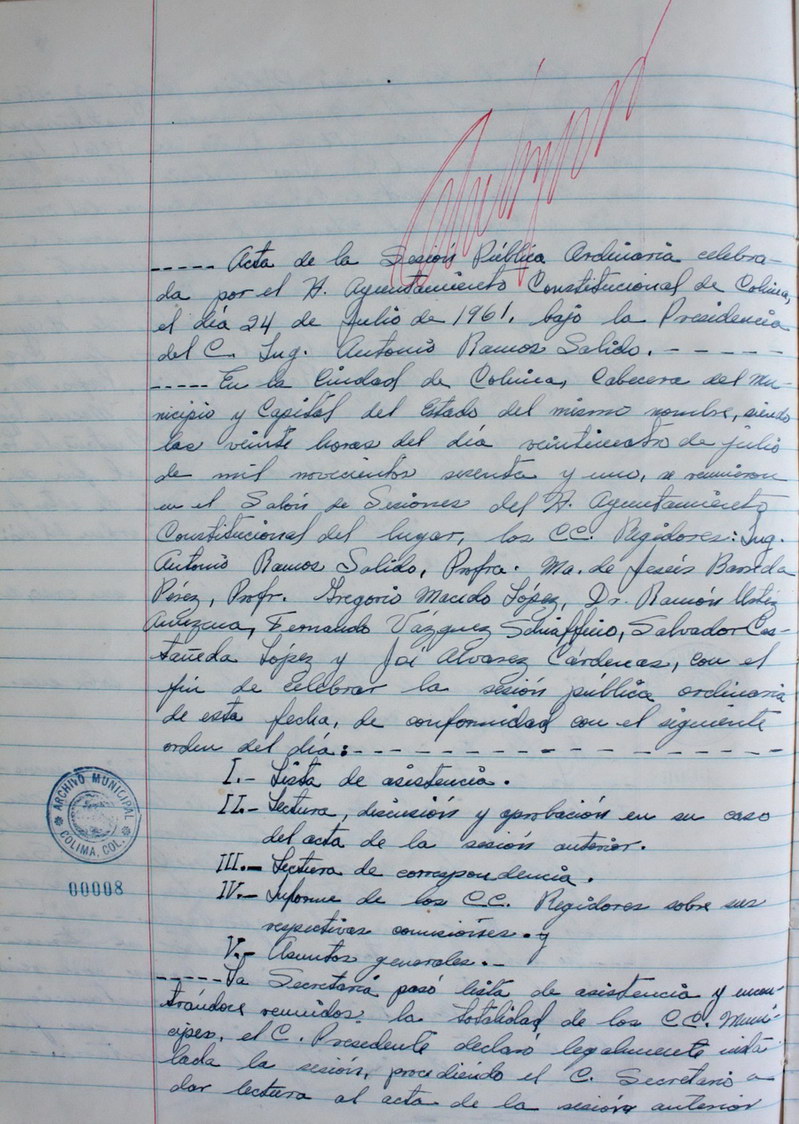 ----- Acta de la Sesión Pública Ordinaria celebra-
da por el H. Ayuntamiento Constitucional de Colima,
el día 24 de julio de 1961, bajo la Presidencia
del C. Ing. Antonio Ramos Salido. - - - - -
----- En la Ciudad de Colima, Cabecera del Mu-
nicipio y Capital del Estado del mismo nombre, siendo
las veinte horas del día veinticuatro de julio
de mil novecientos sesenta y uno, se reunieron
en el Salón de Sesiones del H. Ayuntamiento
Constitucional del lugar, los CC. Regidores: Ing.
Antonio Ramos Salido, Profra. Ma. de Jesús Barreda
Pérez, Profr. Gregorio Macedo López, Dr. Ramón
Amezcua, Fernando Vázquez Schiaffino, Salvador Cas-
tañeda López y José Alvarez Cárdenas, con el
fin de celebrar la sesión pública ordinaria
de esta fecha, de conformidad con el siguiente
orden del día: - - - - - - - - - - - - - - -
I.- Lista de asistencia.
II.- Lectura, discusión y aprobación en su caso
del acta de la sesión anterior.
III.- Lectura de correspondencia.
IV.- Informe de los C.C. Regidores sobre sus
respectivas comisiones. y
V.- Asuntos generales.-
----- La Secretaría pasó lista de asistencia y encon-
trándose reunidos la totalidad de los C.C. Muní-
cipes, el C. Presidente declaró legalmente insta
lada la sesión, procediendo el C. Secretario a
dar lectura al acta de la sesión anterior
ARCHIVO MUNICIPAL
COLIMA, COL.
00008